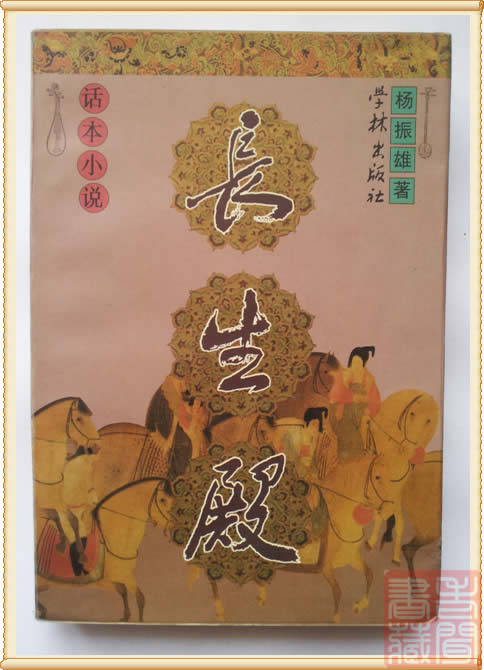 杨振雄著
学林出版社
長生殿
话本小说